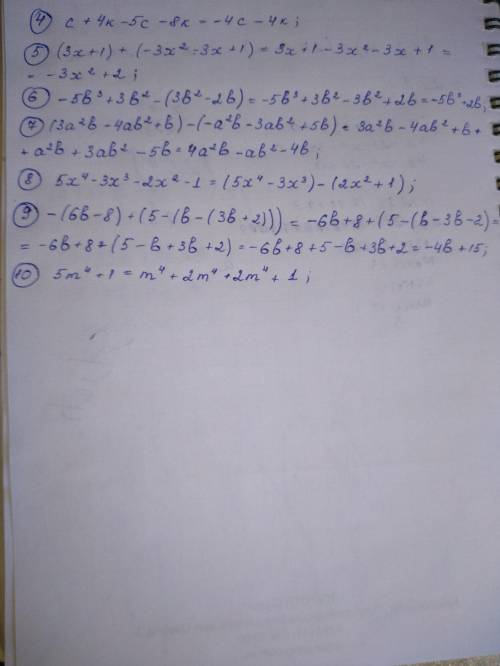 ④ c + 4к - 5c - 8к = -4c - 4к;
⑤ (3x+1) + (-3x² - 3x + 1) = 3x + 1 - 3x² - 3x + 1 =
= -3x² + 2;
⑥ -5b³ + 3b² - (3b² - 2b) = -5b³ + 3b² - 3b² + 2b = -5b³ + 2b;
⑦ (3a²b - 4ab² + b) - (-a²b - 3ab² + 5b) = 3a²b - 4ab² + b +
+ a²b + 3ab² - 5b = 4a²b - ab² - 4b;
⑧ 5x⁴ - 3x³ - 2x² - 1 = (5x⁴ - 3x³) - (2x² + 1);
⑨ -(6b - 8) + (5 - (b - (3b + 2))) = -6b + 8 + (5 - (b - 3b - 2) =
= -6b + 8 + (5 - b + 3b + 2) = -6b + 8 + 5 - b + 3b + 2 = -4b + 15;
⑩ 5m⁴ + 1 = m⁴ + 2m⁴ + 2m⁴ + 1;